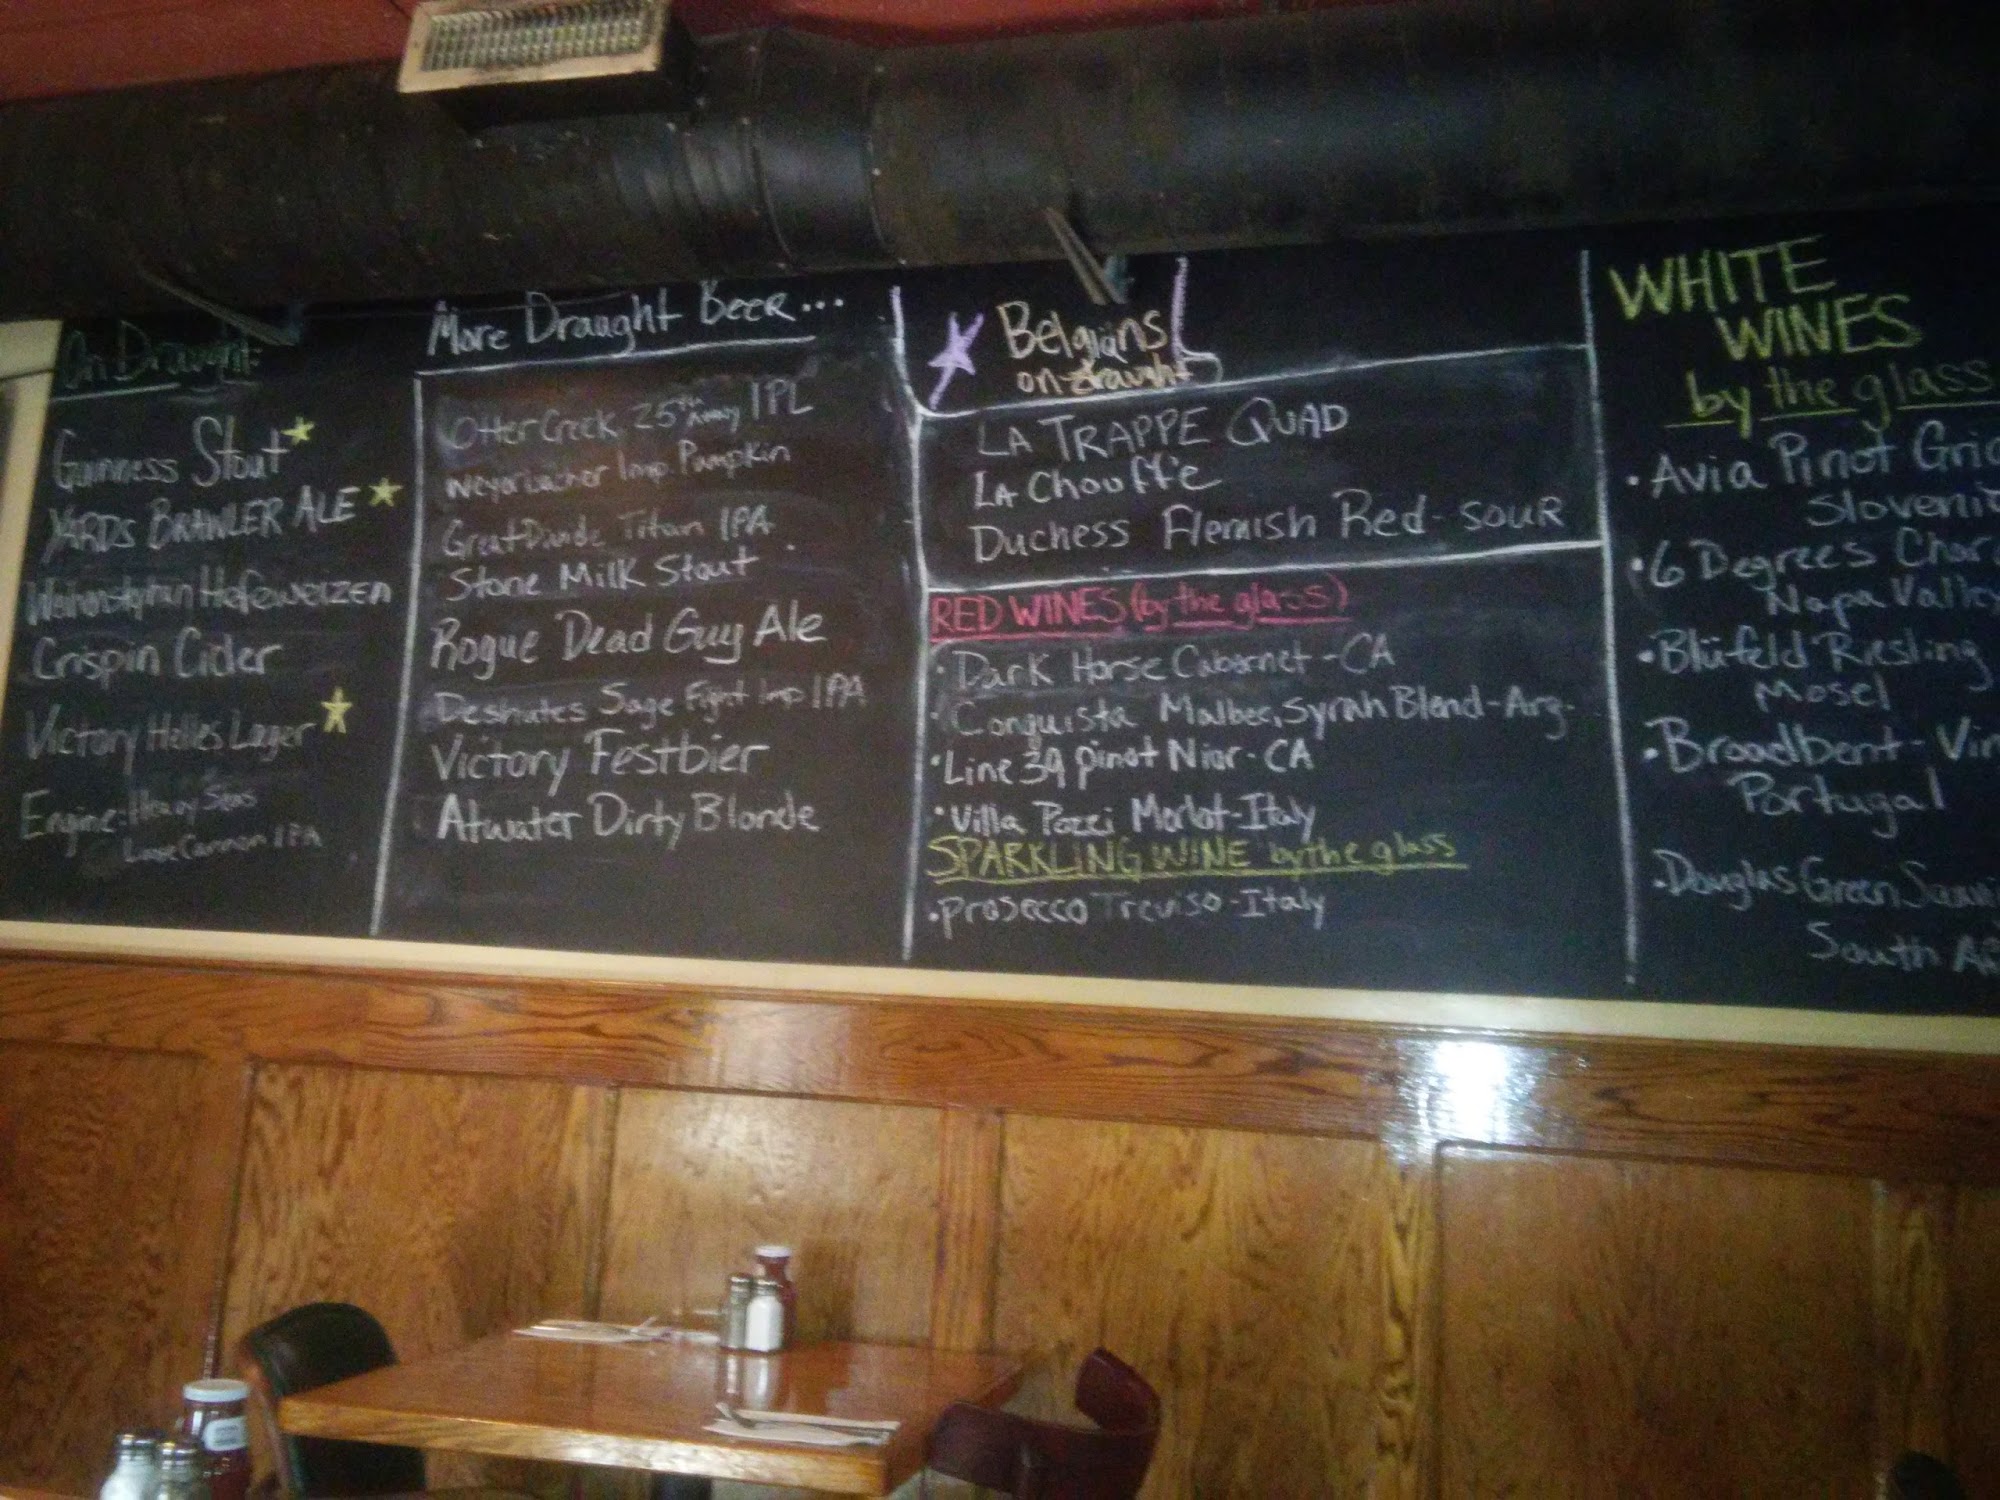 On Draught:
Guinness Stout
YARDS BRAWLER ALE
Hefeweizen
Crispin Cider
Victory Helles Lager
Engine: Heavy Seas
Loose Cannon IPA
More Draught Beer...
Otter Creek 25th IPL
Weyerbacher Imp. Pumpkin
Great Divide Titan IPA
Stone Milk Stout
Rogue Dead Guy Ale
Deshutes Sage Fight Imp IPA
Victory Festbier
Atwater Dirty Blonde
Belgians
on draught
LA TRAPPE QUAD
LA Chouffe
Duchess Flemish Red - SOUR
RED WINES (by the glass)
• Dark Horse Cabernet - CA
• Conquista Malbec, Syrah Blend - Arg.
• Line 39 Pinot Nior - CA
• Villa Pozzi Merlot - Italy
SPARKLING WINE by the glass
• Prosecco Treviso - Italy
WHITE
WINES
by the glass
• Avia Pinot Gri
Sloveni
• 6 Degrees Char
Napa Valley
• Blüfeld Riesling
Mosel
• Broadbent - Vin
Portugal
• Douglas Green Sauvi
South Af